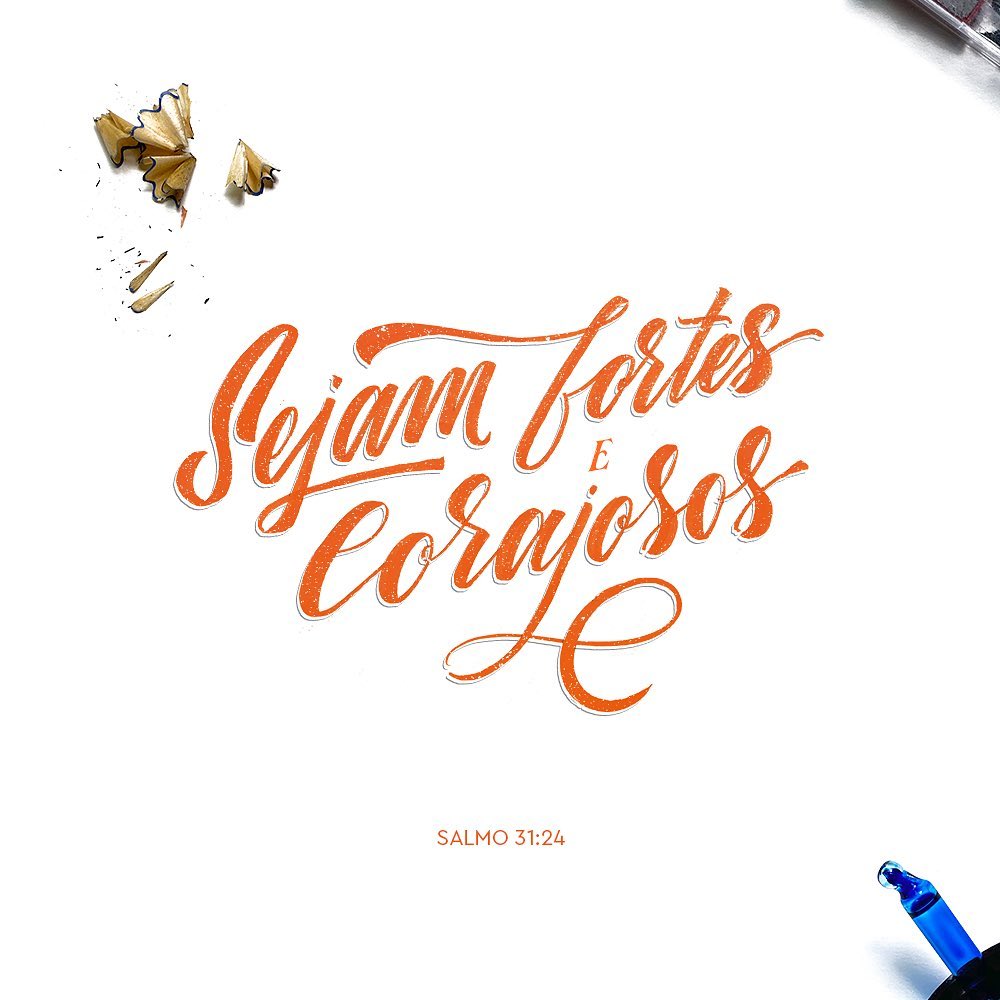 Sejam fortes
E
Corajosos
SALMO 31:24